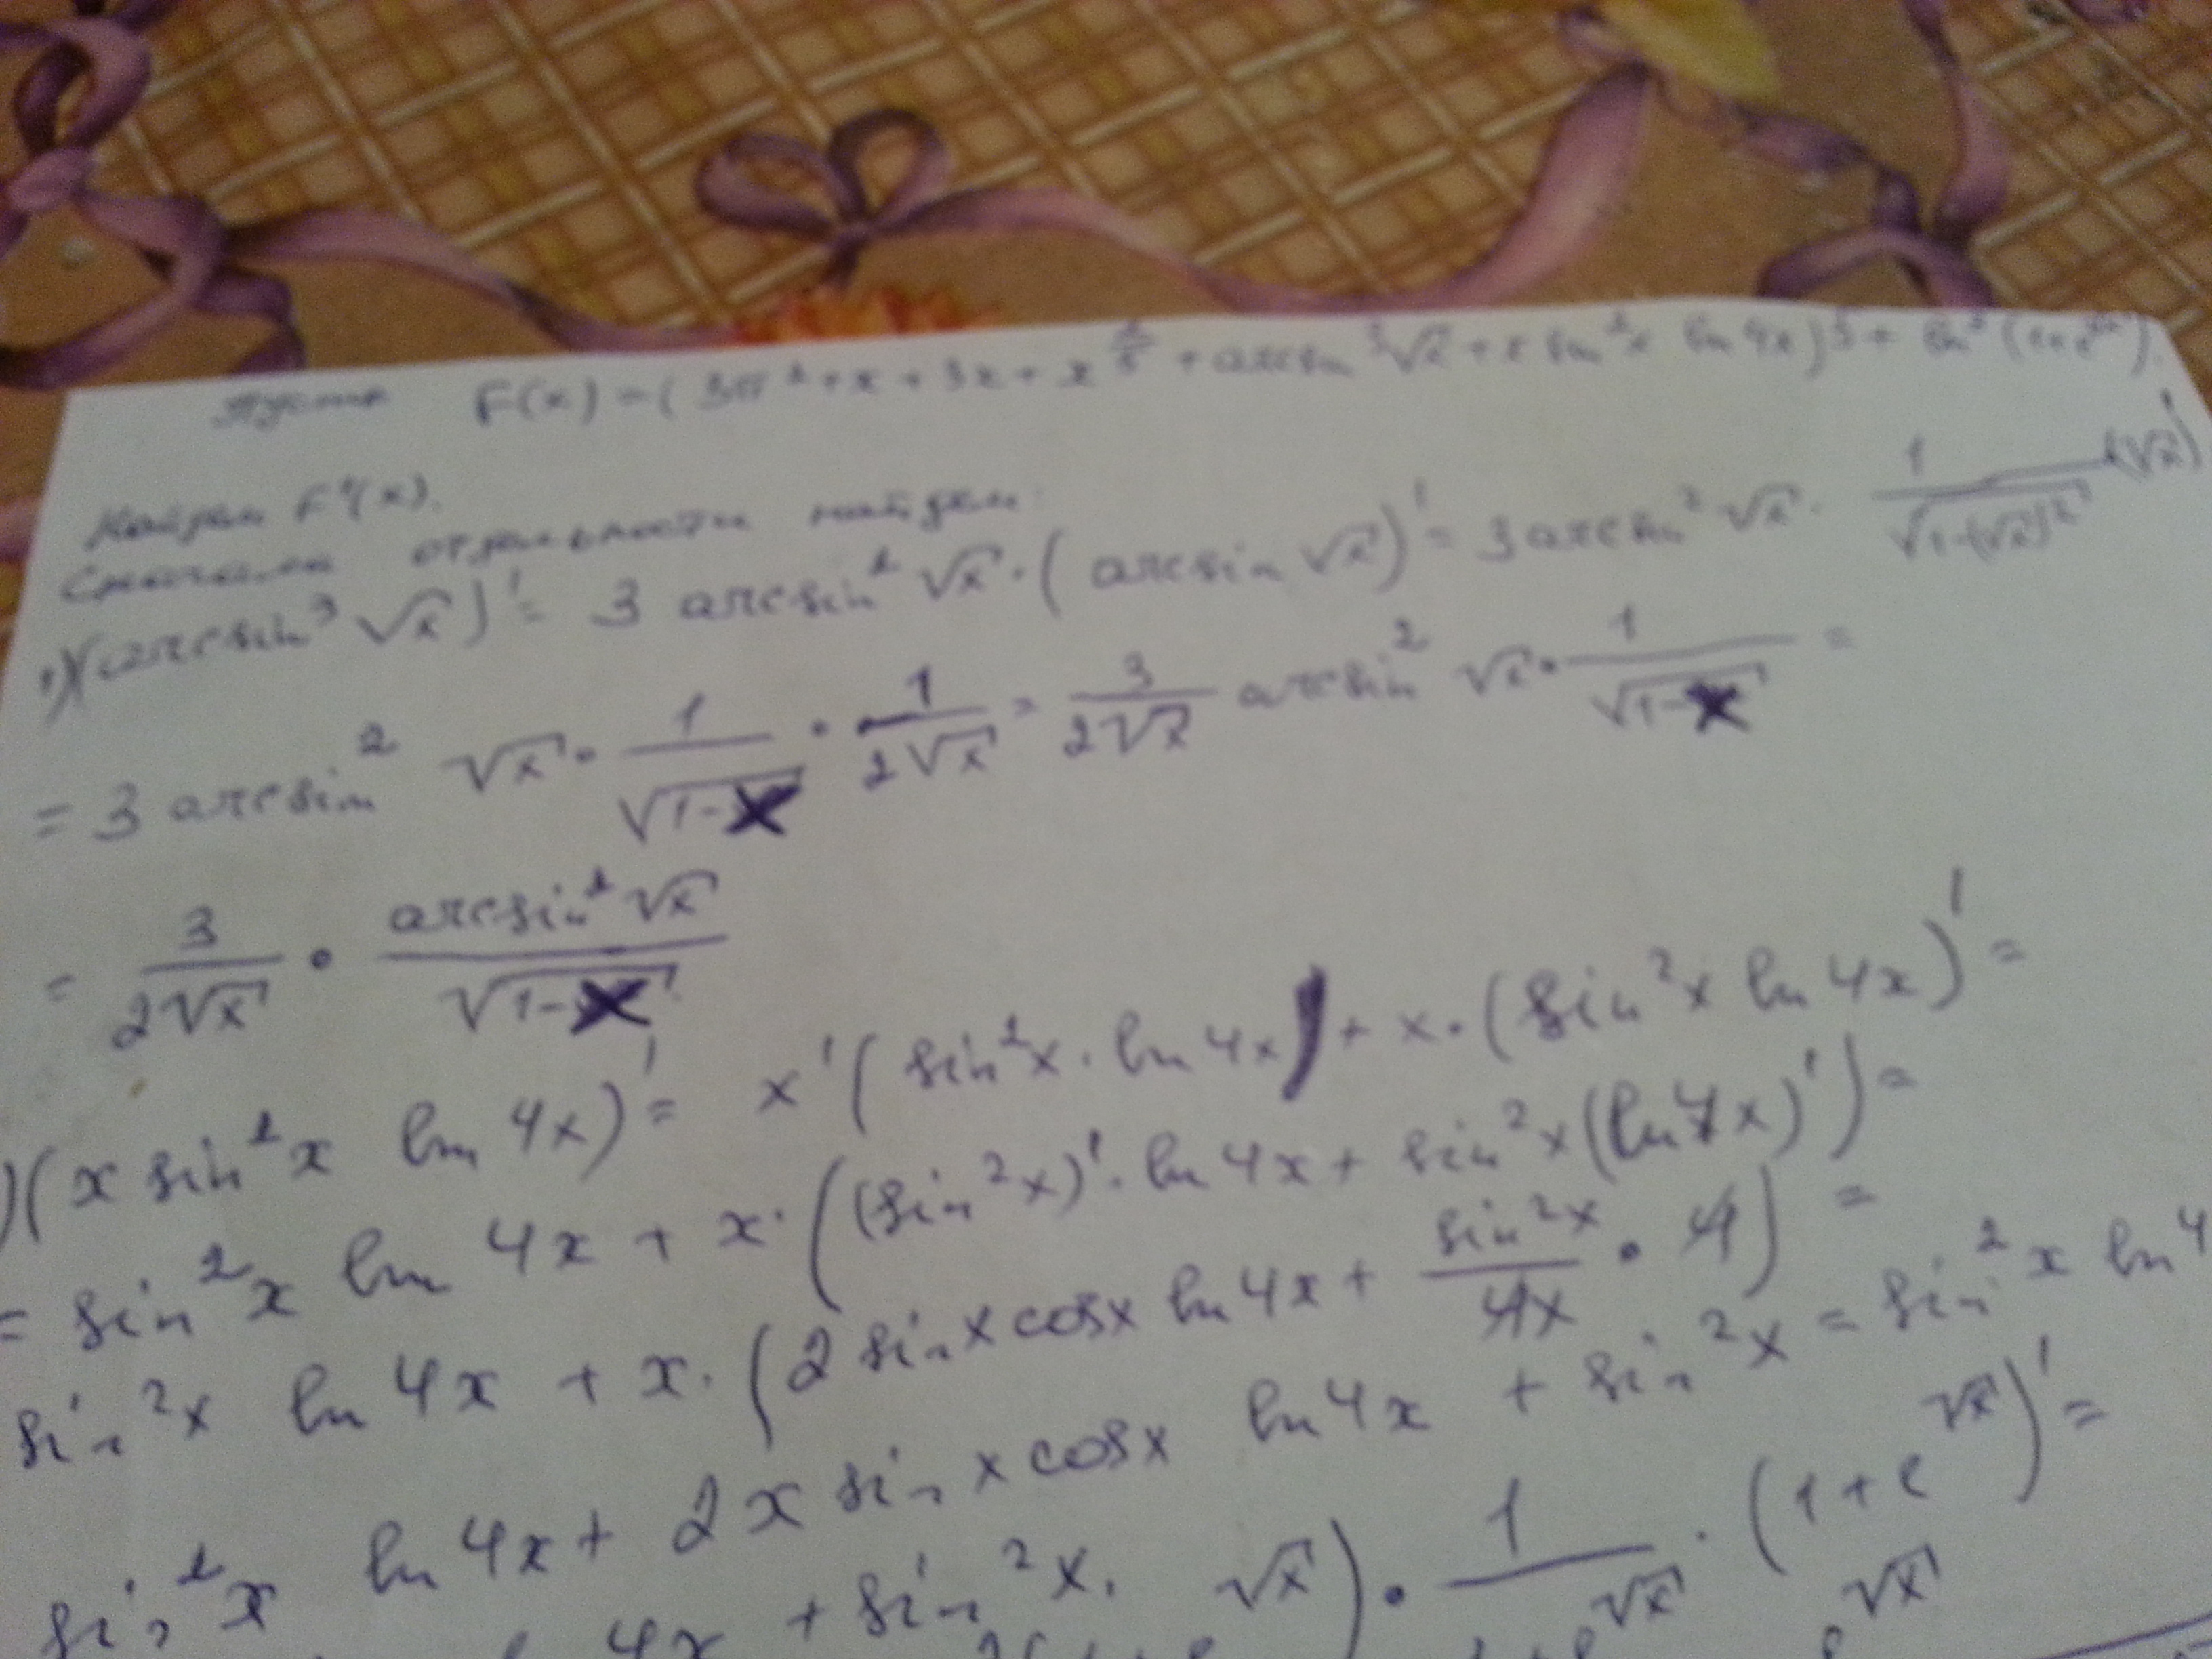 Пусть F(x) = (3π² + x + 3x + x^ + arcsin³√x + x sin²x ln 4x)⁵ + ln²(1+e^√x).
Найдем F'(x).
Сначала отдельности найдем:
1)(arcsin³√x)' = 3 arcsin²√x · (arcsin √x)' = 3 arcsin²√x · 1/√(1-(√x)²) · (√x)'
= 3 arcsin²√x · 1/√(1-x) · 1/(2√x) = 3/(2√x) arcsin²√x · 1/√(1-x) =
= 3/(2√x) · arcsin²√x/√(1-x)
)(x sin²x ln 4x)' = x'(sin²x · ln 4x) + x·(sin²x ln 4x)' =
= sin²x ln 4x + x·((sin²x)'· ln 4x + sin²x (ln 4x)') =
sin²x ln 4x + x·(2 sin x cos x ln 4x + sin²x/4x · 4) =
sin²x ln 4x + 2x sin x cos x ln 4x + sin²x = sin²x ln 4
4x + sin²x.
√x) · 1/ √x · (1+e^√x)' =